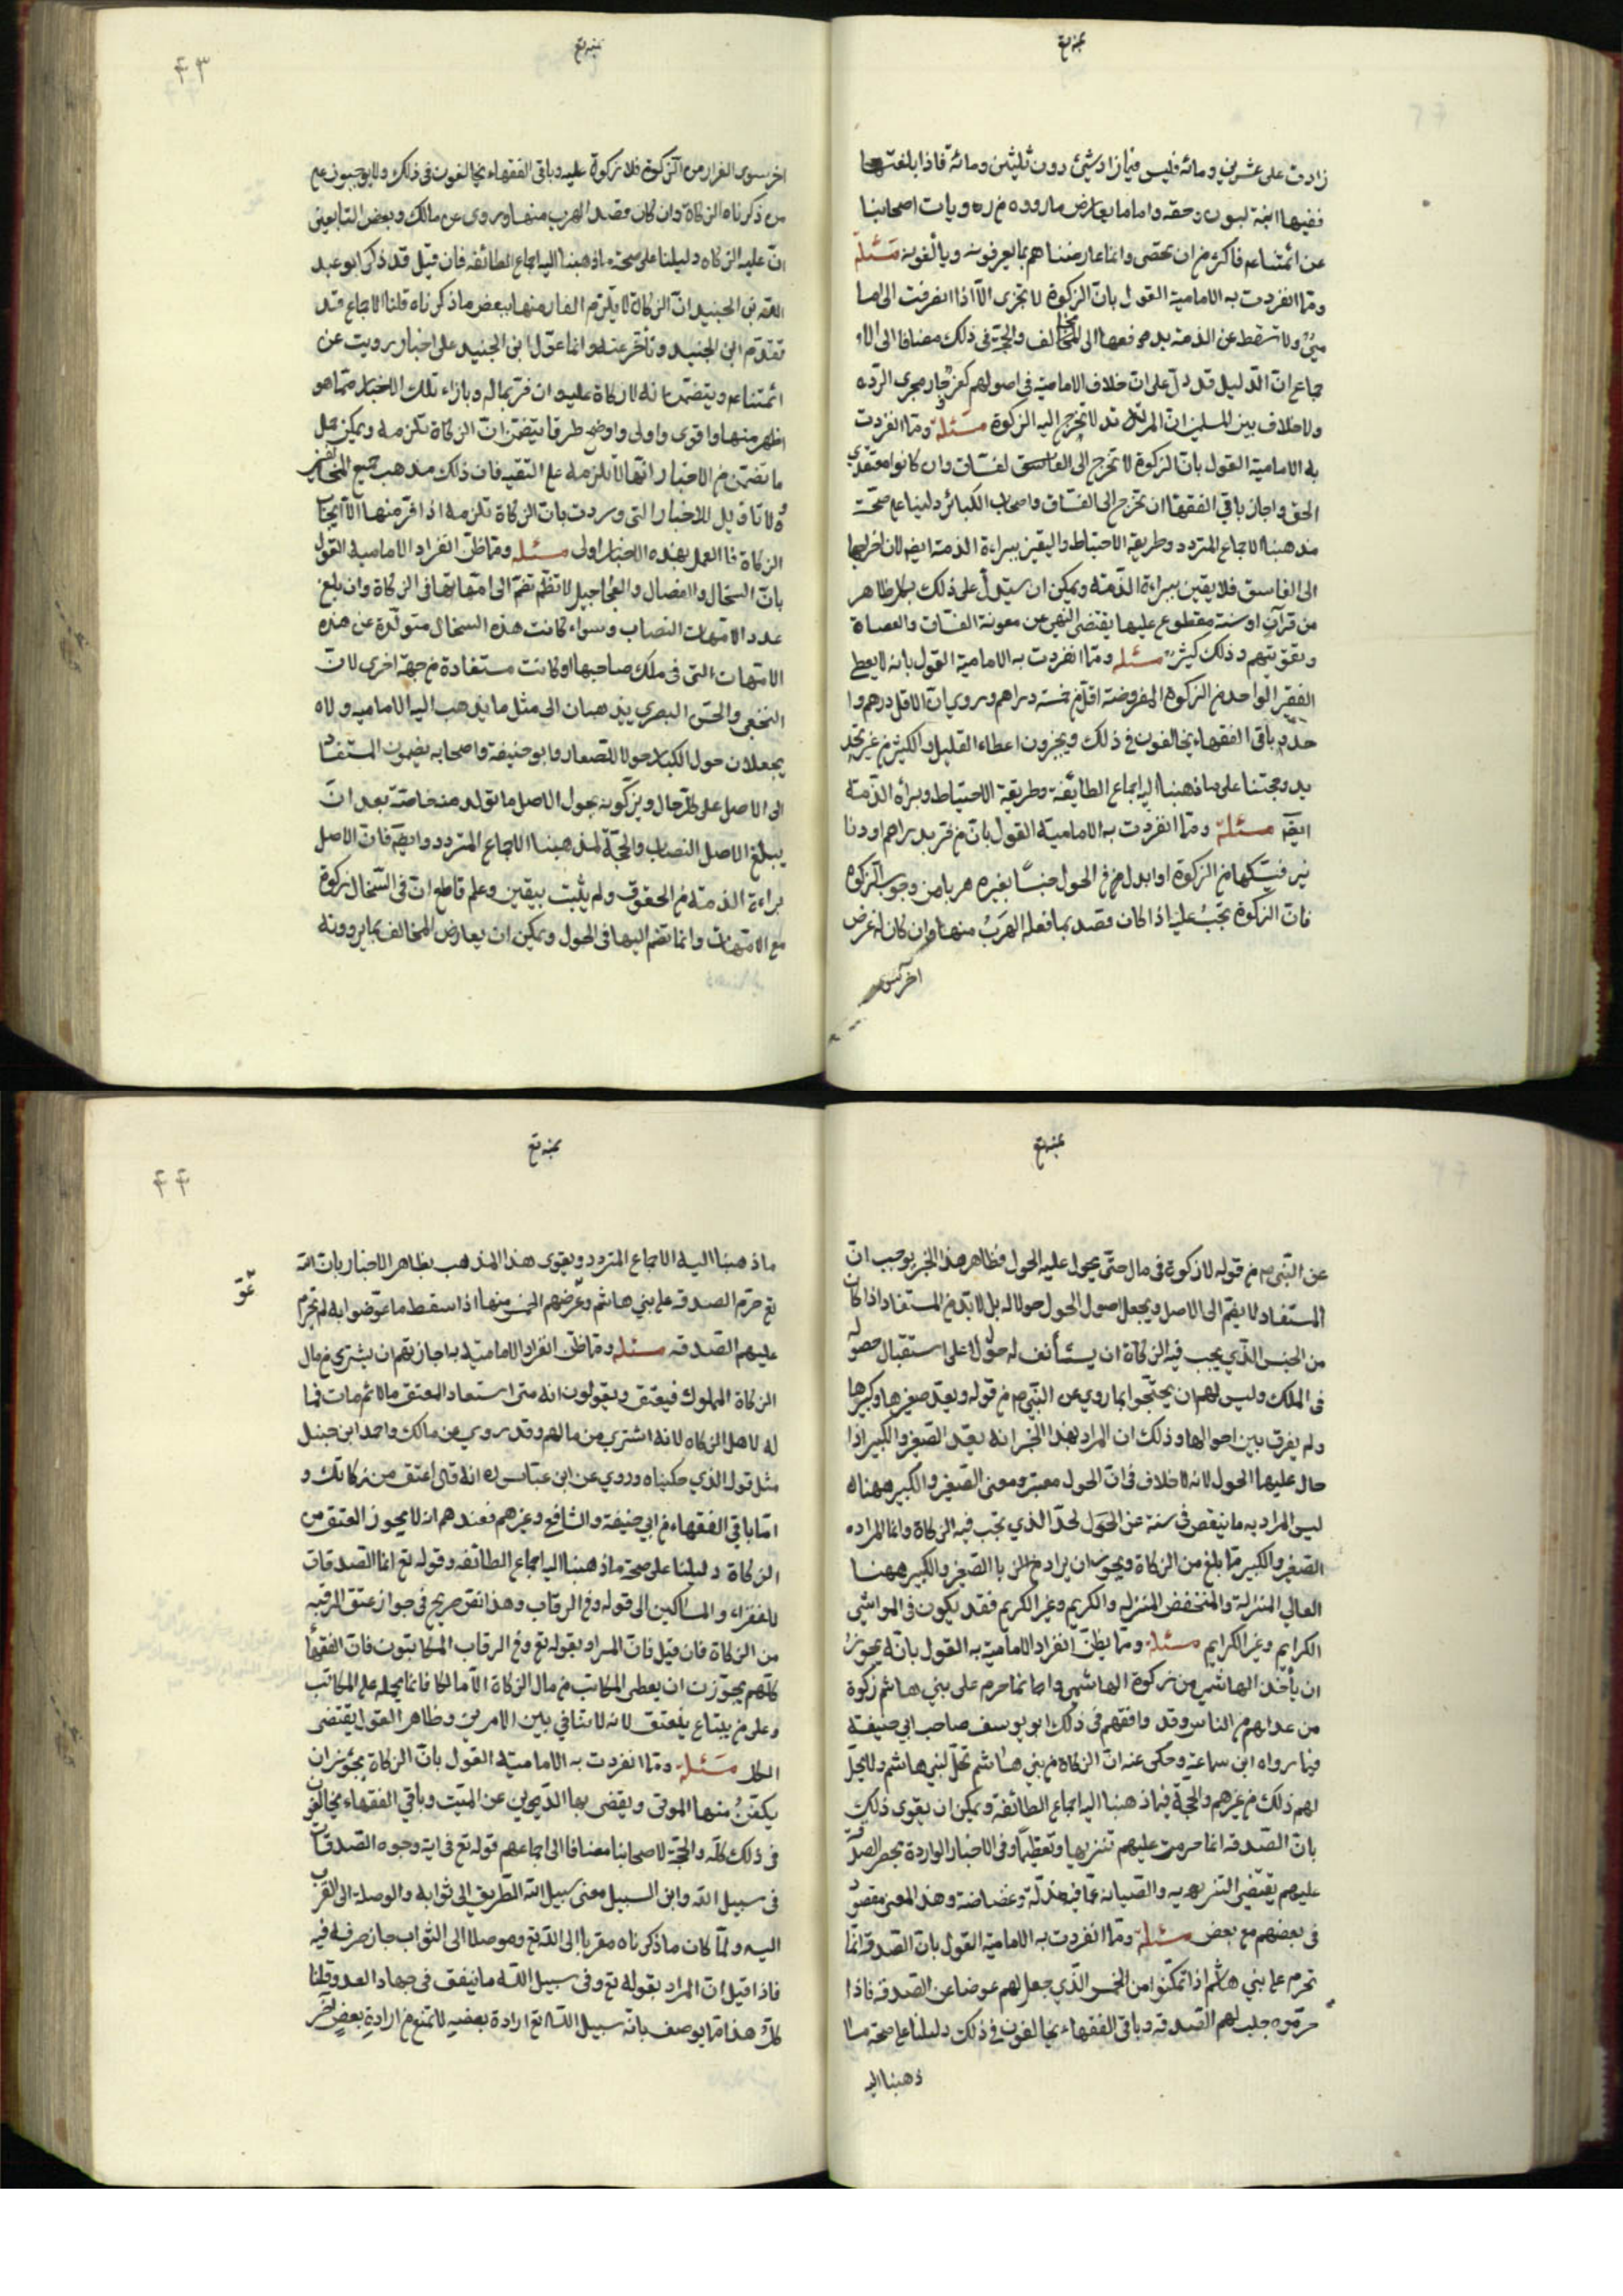 زادت على عشرين ومائة فليس فيما زاد شيئ دون ثلثين ومائة فاذا بلغتها
ففيها ابنة لبون وحقه واما ما يعارض ما رووه من روايات اصحابنا
عن ائمتناعم فاكثر من ان تحصى وانما عارضناهم بما يعرفونه ويألفونه مسئلة
ومما انفردت به الامامية القول بان الزكوة لا تجزى الا اذا انصرفت الى اما
مي ولا تسقط عن الذمة بدفعها الى المخالف والحجة فى ذلك مضافا الى الا
جماع ان الدليل قد دل على ان خلاف الامامية فى اصولهم كفر جار مجرى الردة
ولا خلاف بين المسلمين ان المرتد لا تخرج اليه الزكوة مسئلة ومما انفردت
به الامامية القول بان الزكوة لا تخرج الى الفساق وان كانوا معتقدي
الحق واجاز باقي الفقها ان تخرج الى الفساق واصحاب الكبائر دليلنا على صحة
مذهبنا الاجماع المتردد وطريقة الاحتياط واليقين ببراءة الذمة ايضا لان اخراجها
الى الفاسق فلا يقين ببراءة الذمة ويمكن ان يستدل على ذلك بكل ظاهر
من قرآن او سنة مقطوع عليها يقتضى النهى عن معونة الفساق والعصاة
وتقويتهم وذلك كثير مسئله ومما انفردت به الامامية القول بانه لا يعطى
الفقير الواحد من الزكوة المفروضة اقل من خمسة دراهم وروي ان الاقل درهم وا
حد وباقى الفقهاء يخالفون فى ذلك ويجيزون اعطاء القليل والكثير من غير تحد
يد وحجتنا على ما ذهبنا اليه اجماع الطائفة وطريقة الاحتياط وبراءة الذمة
ايضا مسئلة ومما انفردت به الامامية القول بان من فر بدراهم او دنا
نير فسبكها من الزكوة او ابدل فى الحول جنسا بغيره هربا من وجوب الزكوة
فان الزكوة تجب عليه اذا كان قصد بما فعله الهرب منها وان كان له غرض
اخر سوى
۴۳
اخر سوى الفرار من الزكوة فلا زكوة عليه وباقى الفقهاء يخالفون فى ذلك ولا يوجبون على
من ذكرناه الزكاة وان كان قصد الهرب منها وروى عن مالك وبعض التابعين
ان عليه الزكاه دليلنا على صحة ما ذهبنا اليه اجماع الطائفه فان قيل قد ذكر ابو عبد
الله بن الجنيد ان الزكاة لا تلزم الفار منها ببعض ما ذكرناه قلنا الاجماع قد
تقدم ابن الجنيد وتأخر عنه وانما عول ابن الجنيد على اخبار رويت عن
ائمتناعم ويتضمن انه لا زكاة عليه ان فر بماله وبازاء تلك الاخبار مما هو
اظهر منها واقوى واولى واوضح طرقا يتضمن ان الزكاة تلزمه ويمكن حمل
ما تضمن من الاخبار انها لا تلزمه على التقيه فان ذلك مذهب جميع المخالفين
ولا تاويل للاخبار التى وردت بان الزكاة تلزمه اذا فر منها الا ايجاب
الزكاة فالعمل بهذه الاخبار اولى مسئله ومما ظن انفراد الامامية القول
بان السخال والفصال والعجاجيل لا تضم الى امهاتها فى الزكاة وان بلغ
عدد الامهات النصاب وسواء كانت هذه السخال متولدة عن هذه
الامهات التى فى ملك صاحبها او كانت مستفادة من جهة اخرى لان
النخعى والحسن البصرى يذهبان الى مثل ما يذهب اليه الاماميه ولا
يجعلان حول الكبار حولا للصغار وابو حنيفه واصحابه يضمون المستفاد
الى الاصل على كل حال ويزكونه بحول الاصل ما تولد منه خاصة بعد ان
يبلغ الاصل النصاب والحجة لمذهبنا الاجماع المتردد وايضا فان الاصل
براءة الذمة من الحقوق ولم يثبت بيقين وعلم قاطع ان فى السخال زكوة
مع الامهات وانما تضم اليها فى الحول ويمكن ان يعارض المخالف بما يروونه
عن النبى ص من قوله لا زكوة فى مال حتى يحول عليه الحول فظاهر هذا الخبر يوجب ان
المستفاد لا يضم الى الاصل ويجعل اصول الحول حولا له بل لا بد من المستفاد اذا كان
من الجنس الذي يجب فيه الزكاة ان يستأنف له حولا على استقبال حصوله
فى الملك وليس لهم ان يحتجوا بما روي عن النبى ص من قوله ويعد صغيرها وكبيرها
ولم يفرق بين احوالها وذلك ان المراد بهذا الخبر انه يعد الصغير والكبير اذا
حال عليها الحول لانه لا خلاف فى ان الحول معتبر ومعنى الصغير والكبير ههناه
ليس المراد به ما ينقص فى سنة عن الحول لحد الذي يجب فيه الزكاة وانما المراد ه
الصغير والكبير مما بلغ من الزكاة ويجوز ان يراد بالصغير والكبير ههنا
العالي المنزلة والمنخفض المنزله والكريم وغير الكريم فقد يكون فى المواشى
الكرايم وغير الكرايم مسئله ومما يظن انفراد الامامية به القول بانه يجوز
ان يأخذ الهاشمى من زكوة الهاشمي وانما حرم على بني هاشم زكوة
من عداهم من الناس وقد وافقهم فى ذلك ابو يوسف صاحب ابى حنيفة
فيما رواه ابن سماعة وحكى عنه ان الزكاة من بني هاشم تحل لبني هاشم ولا يحل
لهم ذلك من غيرهم والحجة فيما ذهبنا اليه اجماع الطائفة ويمكن ان يقوى ذلك
بان الصدقه انما حرمت عليهم تنزيها وتعظيما وفى الاخبار الواردة بحظر الصدقة
عليهم يقتضى التنزيه والصيانه عما فيه مذلة وغضاضة وهذا المعنى مفقود
فى بعضهم مع بعض مسئله ومما انفردت به الامامية القول بان الصدقة انما
تحرم على بني هاشم اذا تمكنوا من الخمس الذي جعل لهم عوضا عن الصدقه فاذا
حرموه حلت لهم الصدقه وباقى الفقهاء يخالفون فى ذلك دليلنا على صحة ما
ذهبنا اليه
۴۴
ما ذهبنا اليه الاجماع المتردد ويقوى هذا المذهب بظاهر الاخبار بان الله
تع حرم الصدقه على بني هاشم وعوضهم الخمس منها اذا سقط ما عوضوا به لم تحرم
عليهم الصدقه مسئله ومما ظن انفراد الامامية به اجازتهم ان يشترى من مال
الزكاة المملوك فيعتق ويقولون انه متى استعاد المعتق مالا ثم مات فما
له لاهل الزكاه لانه اشترى من مالهم وقد روي عن مالك واحمد ابن حنبل
مثل قول الذي حكيناه وروي عن ابن عباس ره انه قال اعتق من زكاتك و
اما باقى الفقهاء من ابي حنيفة والشافعى وغيرهم فعندهم انه لا يجوز العتق من
الزكاة دليلنا على صحة ما ذهبنا اليه اجماع الطائفه وقوله تع انما الصدقات
للفقراء والمساكين الى قوله وفى الرقاب وهذا نص صريح فى جواز عتق الرقبه
من الزكاة فان قيل فان المراد بقوله تع وفى الرقاب المكاتبون فان الفقهأ
كلهم يجوزن ان يعطى المكاتب من مال الزكاة الا مالكا فانا نحمله على المكاتب
وعلى من يبتاع يلعتق لانه لا تنافي بين الامرين وظاهر القول يقتضى
الكل مسئله ومما انفردت به الامامية القول بان الزكاة يجوز ان
يكفن منها الموتى ويقضى بها الدين عن الميت وباقي الفقهاء يخالفون
فى ذلك كله والحجة لاصحابنا مضافا الى اجماعهم قوله تع فى اية وجوه الصدقات
فى سبيل الله وابن السبيل معنى سبيل الله الطريق الى ثوابه والوصلة الى القرب
اليه ولما كان ما ذكرناه مقربا الى الله تع وموصلا الى الثواب جاز صرفه فيه
فاذا قيل ان المراد بقوله تع وفى سبيل الله ما ينفق فى جهاد العدو قلنا
كل هذا مما يوصف بانه سبيل الله تع ارادة بعضه لا تمنع من ارادة بعض اخر